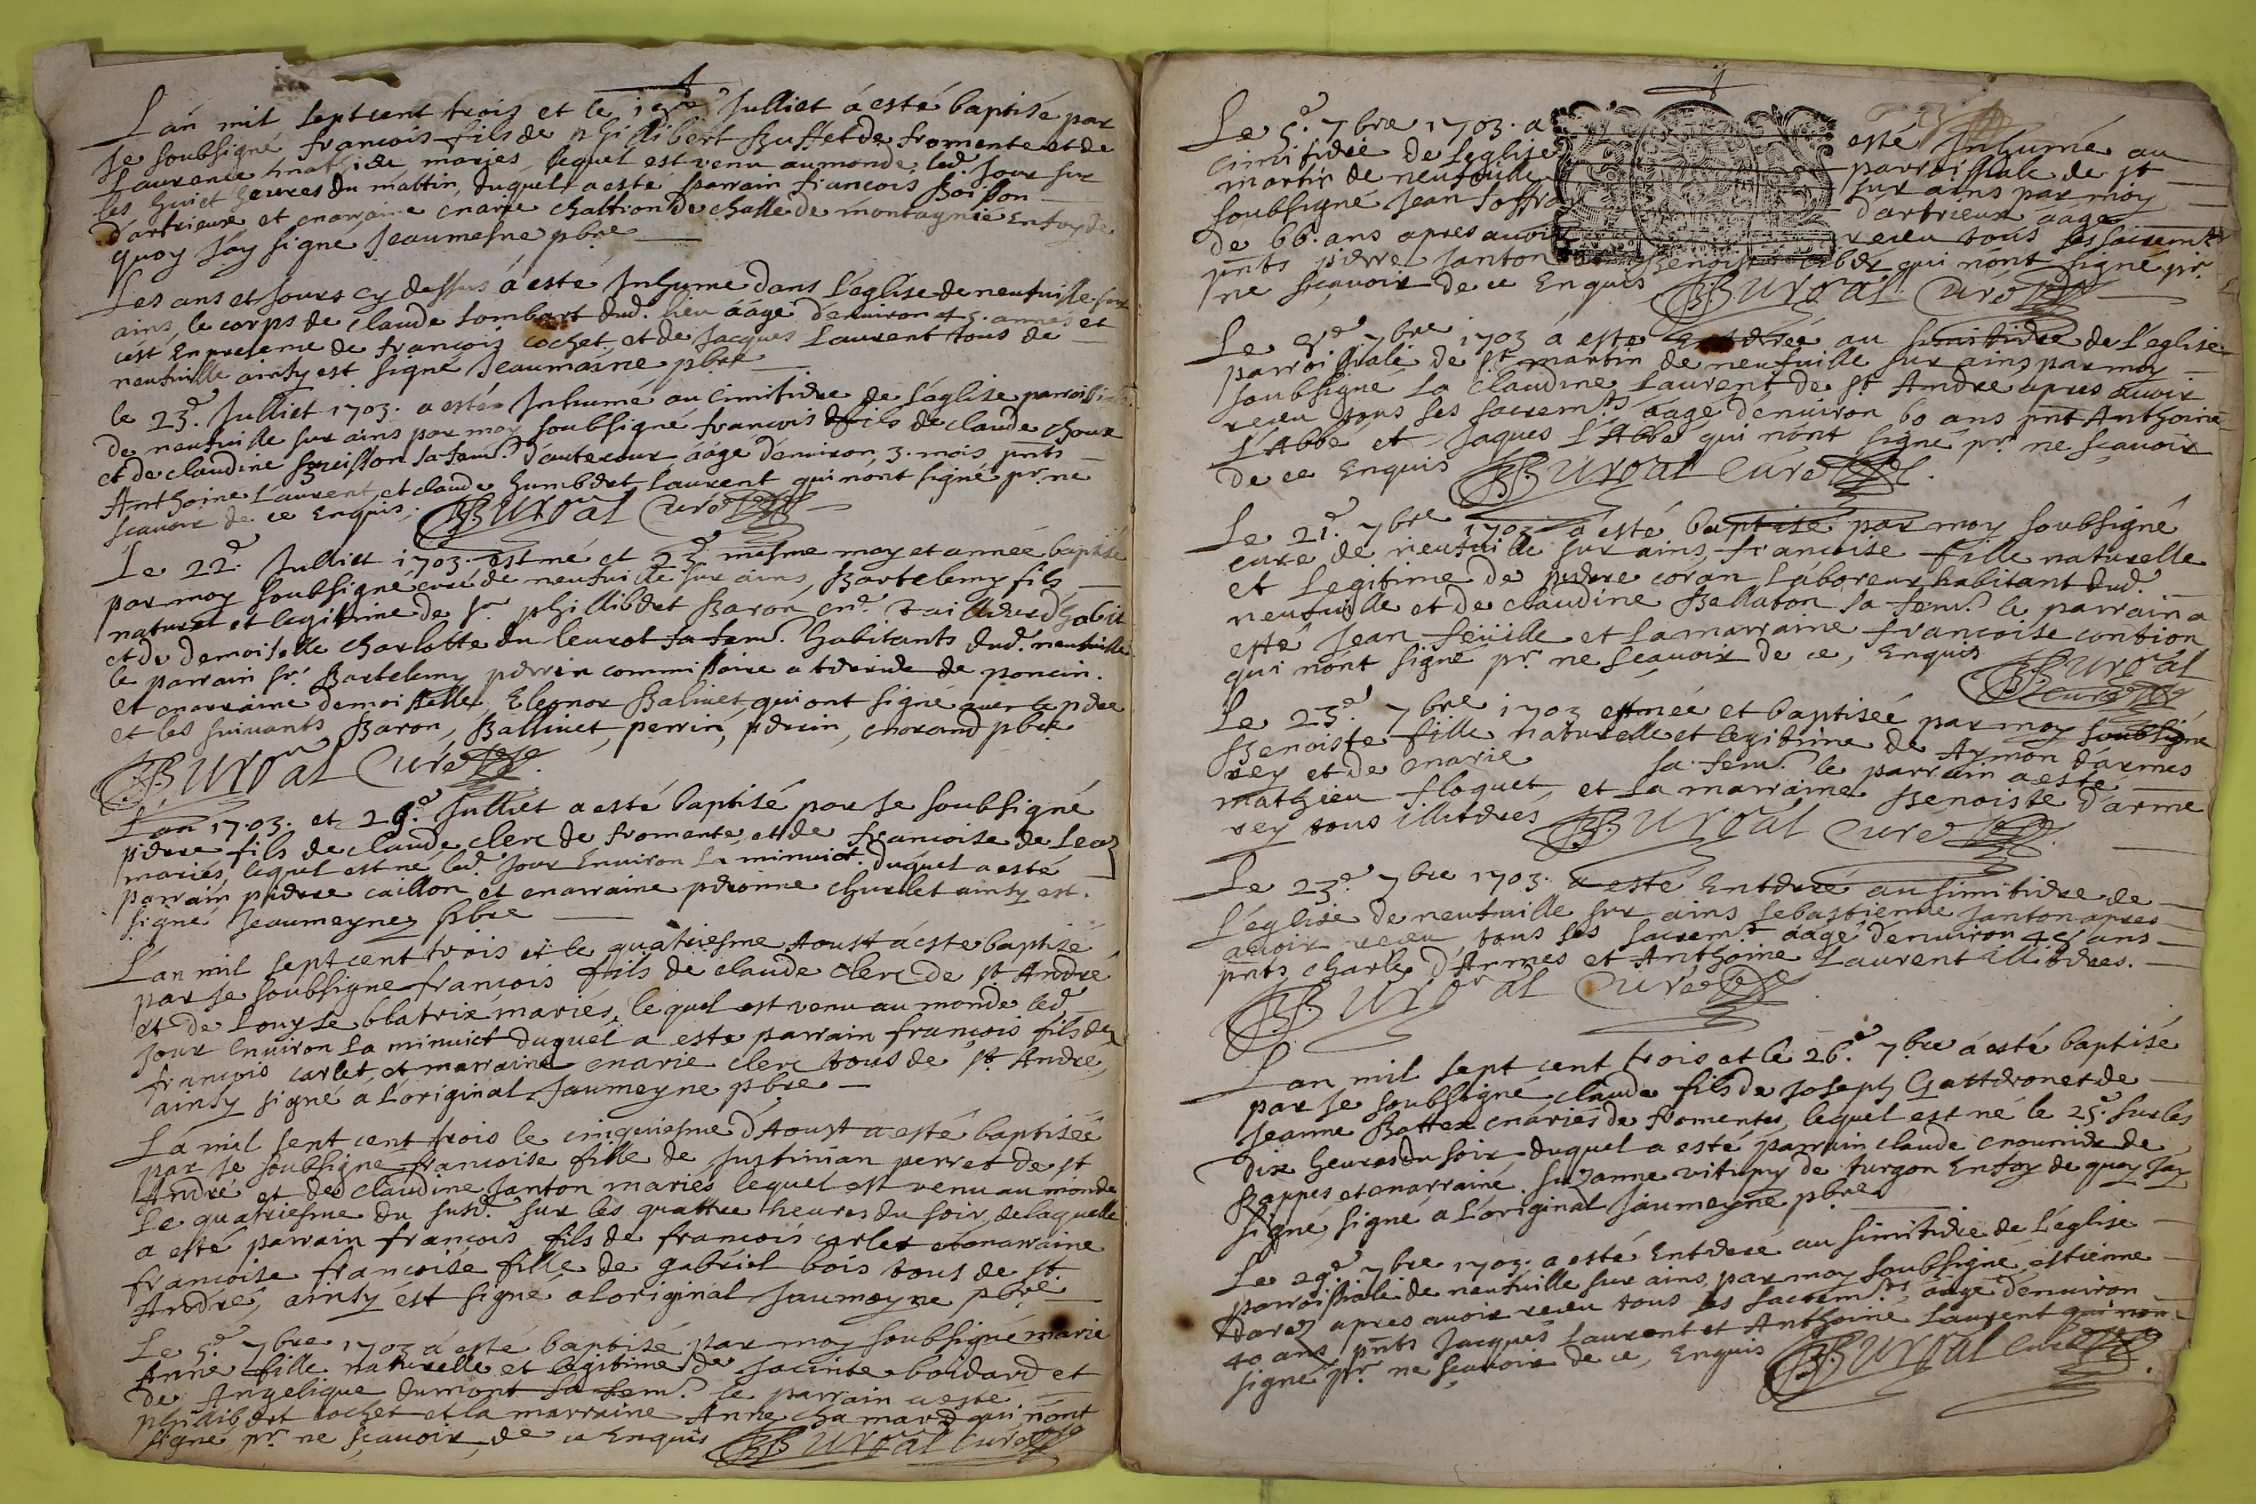 L'an mil sept cent trois et le Julliet à esté baptisé par
Je soubsigné francois fils de phillibert Buffet de fromente et de
Laurence mariés lequel est venu au monde led. Jour sur
les huict heures du mattin, duquel a esté parrain francois Boisson
d'artrieux et marraine marie de challe de montagnie En foy de
quoy Jay signé Jeaumesne pbre
Les ans et Jours cy dessus à esté Inhumé dans L'église de neufuille sur
ains, le corps de claude Lombart dud. lieu áágé d'enuiron et
cest En presence de francois cochet, et de Jacques Laurent tous de
neufuille ainsy est signé Jeaumaine pbre
le 23.e Julliet 1703. a esté Inhumé au cimitiere de L'eglise
de neufuille sur ains par moy soubsigné francois fils de claude choux
et de claudine sa fem. d'autecour áágé d'enuiron, 3. mois pnts
Anthoine Laurent, et claude humbert Laurent qui n'ont signé pr. ne
scauoir de ce Enquis, BBuroal Curé
Le 22.e Julliet 1703. est né et 23.e mesme moy et année baptisé
par moy soubsigné curé de neufuille sur ains, Bartelemy fils
naturel et legitime de sr. phillibert Baron me. tailleur d'habit
et de demoiselle charlotte du leurot sa fem. habitants dud. neufuille
le parrain sr. Bartelemy perrin commissaire a terride de poncin.
et marraine demoiselle Eleonor Baliuet, qui ont signé auec le pere
et les suiuants Baron, Balliuet, perrin, perrin, morand pbre
BBuroal Curé
L'an 1703. et 29.e Julliet a esté baptisé par Je soubsigné
pierre fils de claude clerc de fromente, et de francoise de Leaz
mariés, lequel est né led. Jour Enuiron La minuict. duquel a esté
parrain pierre caillon et marraine pieronne churlet ainsy est
signé Jeaumeyne pbre
L'an mil sept cent trois et le quatriesme Aoust a esté baptisé
par Je soubsigné francois fils de claude clerc de st. André
et de Louyse blatrix mariés, le quel est venu au monde led.
Jour Enuiron La minuict duquel a esté parrain francois fils de
francois carlet, et marraine marie clerc tous de st. Andre,
ainsy signé a L'original Jaumeyne pbre
La mil sept cent trois le cinquiesme d'Aoust a esté baptisée
par Je soubsigné francoise fille de Justinian perret de st
André et de claudine Janton mariés lequel est venu au monde
Le quatriesme du susd. sur les quattre heures du soir, de laquelle
a esté parrain francois fils de francois carlet et marraine
francoise francoise fille de gabriel bois tous de st.
André, ainsy est signé a loriginal Jaumeyne pbre
Le 5.e 7bre 1703 à esté baptisé par moy soubsigné marie
Anne fille naturelle et legitime de Jacinte boidard et
de Angelique dumont sa fem. le parrain a esté
phillibert cochet et la marraine Anne chamard qui n'ont
signé pr. ne scauoir de ce Enquis BBuroal Curé
Le 5.e 7bre 1703. a esté Inhumé au
cimitiere de Leglise parroissiale de st
martin de neufuille sur ains par moy
soubsigné Jean Joffra d'artrieux aagé
de 66. ans apres auoir receu tous ses sacremts
pnts pierre Janton Benoist qui n'ont signé pr.
ne scauoir de ce Enquis BBuroal Curé
Le 7bre 1703 à esté Enterée au simitiere de L'église
parroissiale de st. martin de neufuille sur ains par moy
soubsigné La claudine Laurent, de st. Andre apres auoir
receu tous ses sacremts áágé denuiron 60 ans pnt Anthoine
L'Abbé et Jaques L'Abbé qui n'ont signé pr. ne scauoir
de ce Enquis BBuroal Curé
Le 21.e 7bre 1703 a esté baptisé par moy soubsigné
cure de neufuille sur ains, francoise fille naturelle
et Legitime de pierre coran Laboreur habitant dud.
neufuille et de claudine Bellaton sa fem. le parrain a
esté Jean feüille et La marraine francoise contion
qui n'ont signé pr. ne scauoir de ce, Enquis BBuroal
Curé
Le 23.e 7bre 1703 est née et baptisée par moy soubsigné
Benoiste fille naturelle et legitime de Aymon d'armes
rey et de marie sa fem. le parrain a esté
mathieu floquet, et La marraine Benoiste d'arme
rey tous illiterés BBuroal Curé
Le 23.e 7bre 1703. a esté Enterré au simitiere de
L'église de neufuille sur ains sebastienne Janton apres
auoir receu tous ses sacremt áágé d'enuiron 45 ans
pnts charle d'Armes et Anthoine Laurent illiteres.
BBuroal Curé
L'an mil sept cent trois et le 26.e 7bre à esté baptisé
par Je soubsigné claude fils de Joseph Gatteron et de
Jeanne Battex mariés de fromentes, lequel est né le 25.e sur les
dix heures du soir duquel a esté parrain claude mounier de
Bappes et marraine suzanne vitupy de Jurgon En foy de quoy Jay
signé, signé a L'original Jaumeyne pbre
Le 29.e 7bre 1703. a esté Enterré au simitiere de L'eglise
parroissiale de neufuille sur ains, par moy soubsigné, estienne
darez apres auoir receu tous les sacremts, áagé d'enuiron
40 ans pnts Jacques Laurent et Anthoine Laurent qui non
signé pr. ne scauoir de ce, Enquis BBuroal Curé